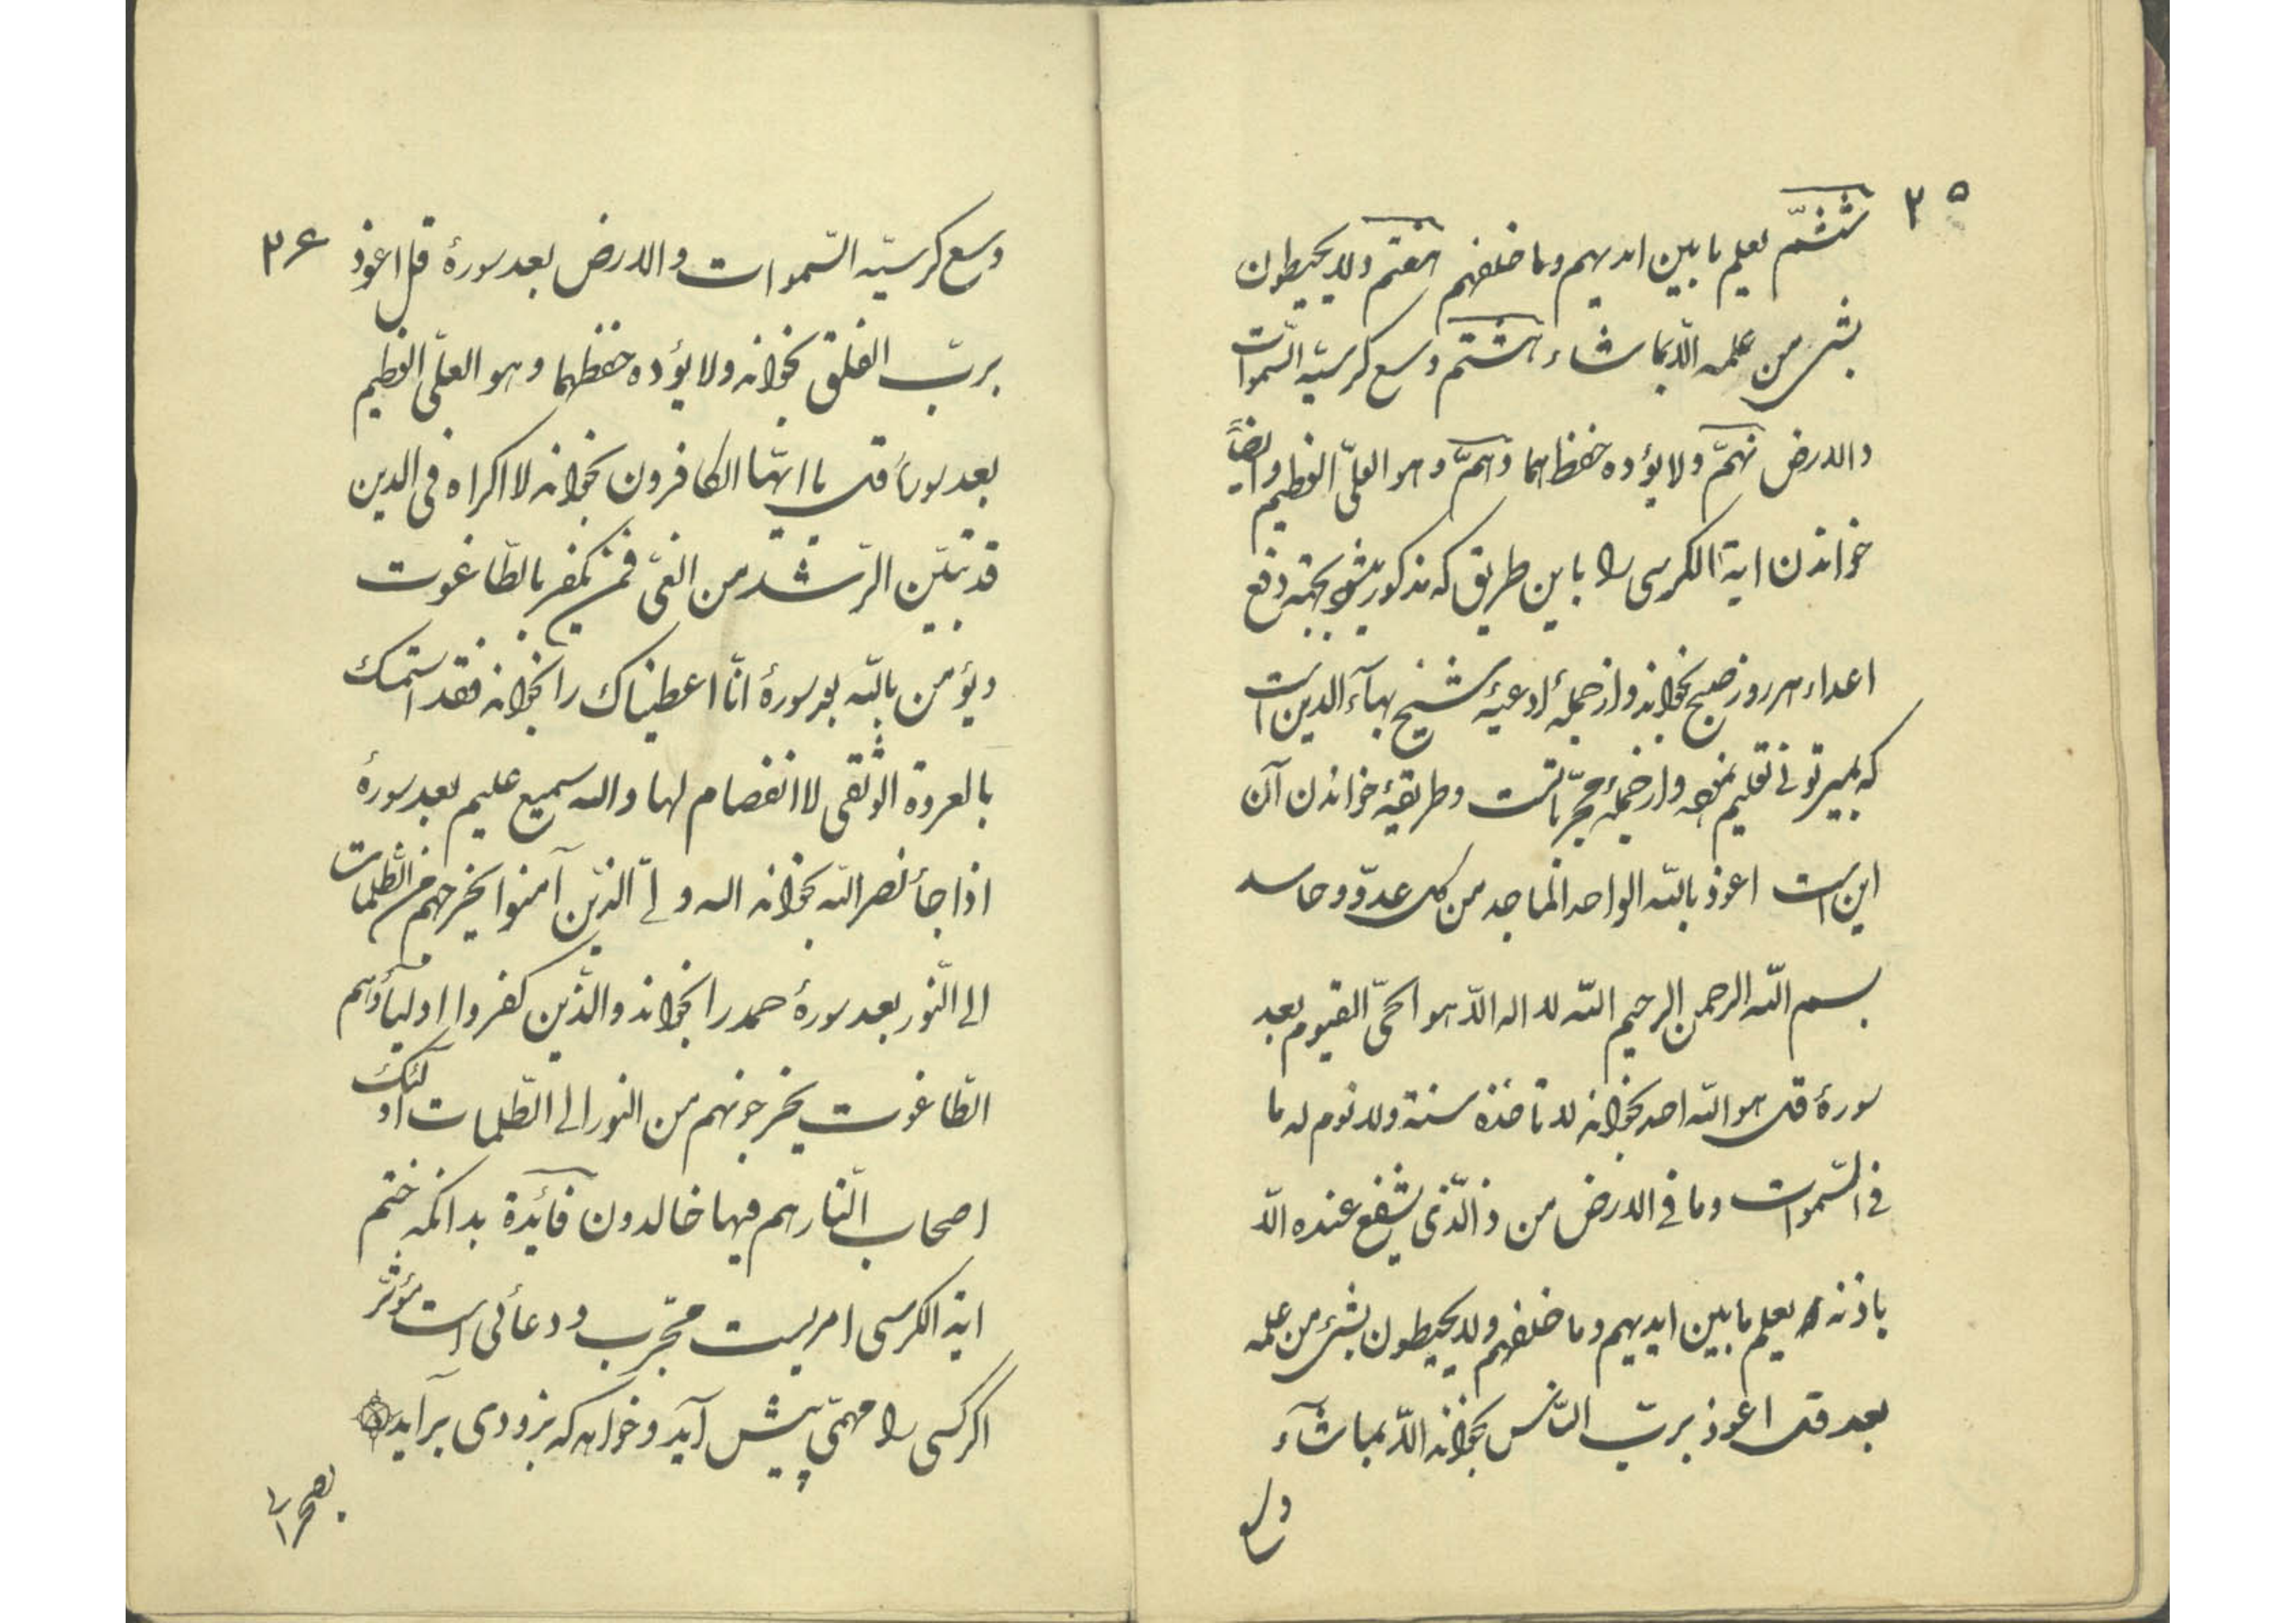 ۳۵
ششم یعلم ما بین ایدیهم وما خلفهم هفتم ولا یحیطون
بشی من علمه الّا بما شاء هشتم وسع کرسیّه السّموات
والارض نهمّ ولا یؤده حفظهما دهمّ وهو العلیّ العظیم وایضاً
خواندن ایة الکرسی را باین طریق که مذکور میشود بجهته دفع
اعداء هر روز صبح بخواند واز جملهٔ ادعیهٔ شیخ بهآء الدین است
که بمیر تونی تعلیم نموده واز جملهٔ مجرّباتست وطریقهٔ خواندن آن
این است اعوذ بالله الواحد الماجد من کل عدوّ وحاسد
بسم الله الرحمن الرحیم الله لا اله الّا هو الحیّ القیوم بعد
سورهٔ قل هو الله احد بخواند لا تاخذه سنة ولا نوم له ما
فی السّموات وما فی الارض من ذالّذی یشفع عنده الّا
باذنه یعلم ما بین ایدیهم وما خلفهم ولا یحیطون بشیء من علمه
بعد قل اعوذ بربّ النّاس بخواند الّا بما شآء
وسع
۳۶
وسع کرسیّه السّموات والارض بعد سورهٔ قل اعوذ
بربّ الفلق بخواند ولا یؤده حفظهما وهو العلیّ العظیم
بعد سورهٔ قل یا ایّها الکافرون بخواند لا اکراه فی الدین
قد تبیّن الرّشد من الغیّ فمن یکفر بالطّاغوت
ویؤمن بالله بعد سورهٔ انّا اعطیناک را بخواند فقد استمسک
بالعروة الوثقی لا انفصام لها والله سمیع علیم بعد سورهٔ
اذا جأ نصر الله بخواند الله ولیّ الذین آمنوا یخرجهم من الظلمات
الی النّور بعد سورهٔ حمد را بخواند والذین کفروا اولیآؤهم
الطّاغوت یخرجونهم من النور الی الظّلمات اولئک
اصحاب النّار هم فیها خالدون فائدة بدانکه ختم
ایة الکرسی امریست مجرّب ودعائی است مؤثّر
اگر کسی را مهمّی پیش آید وخواهد که بزودی برآید
بصحرا